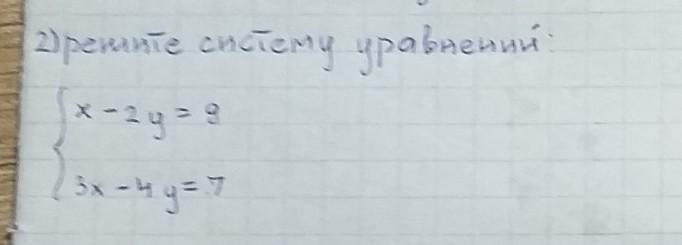 2) решите систему уравнений:
x - 2y = 9
3x - 4y = 7